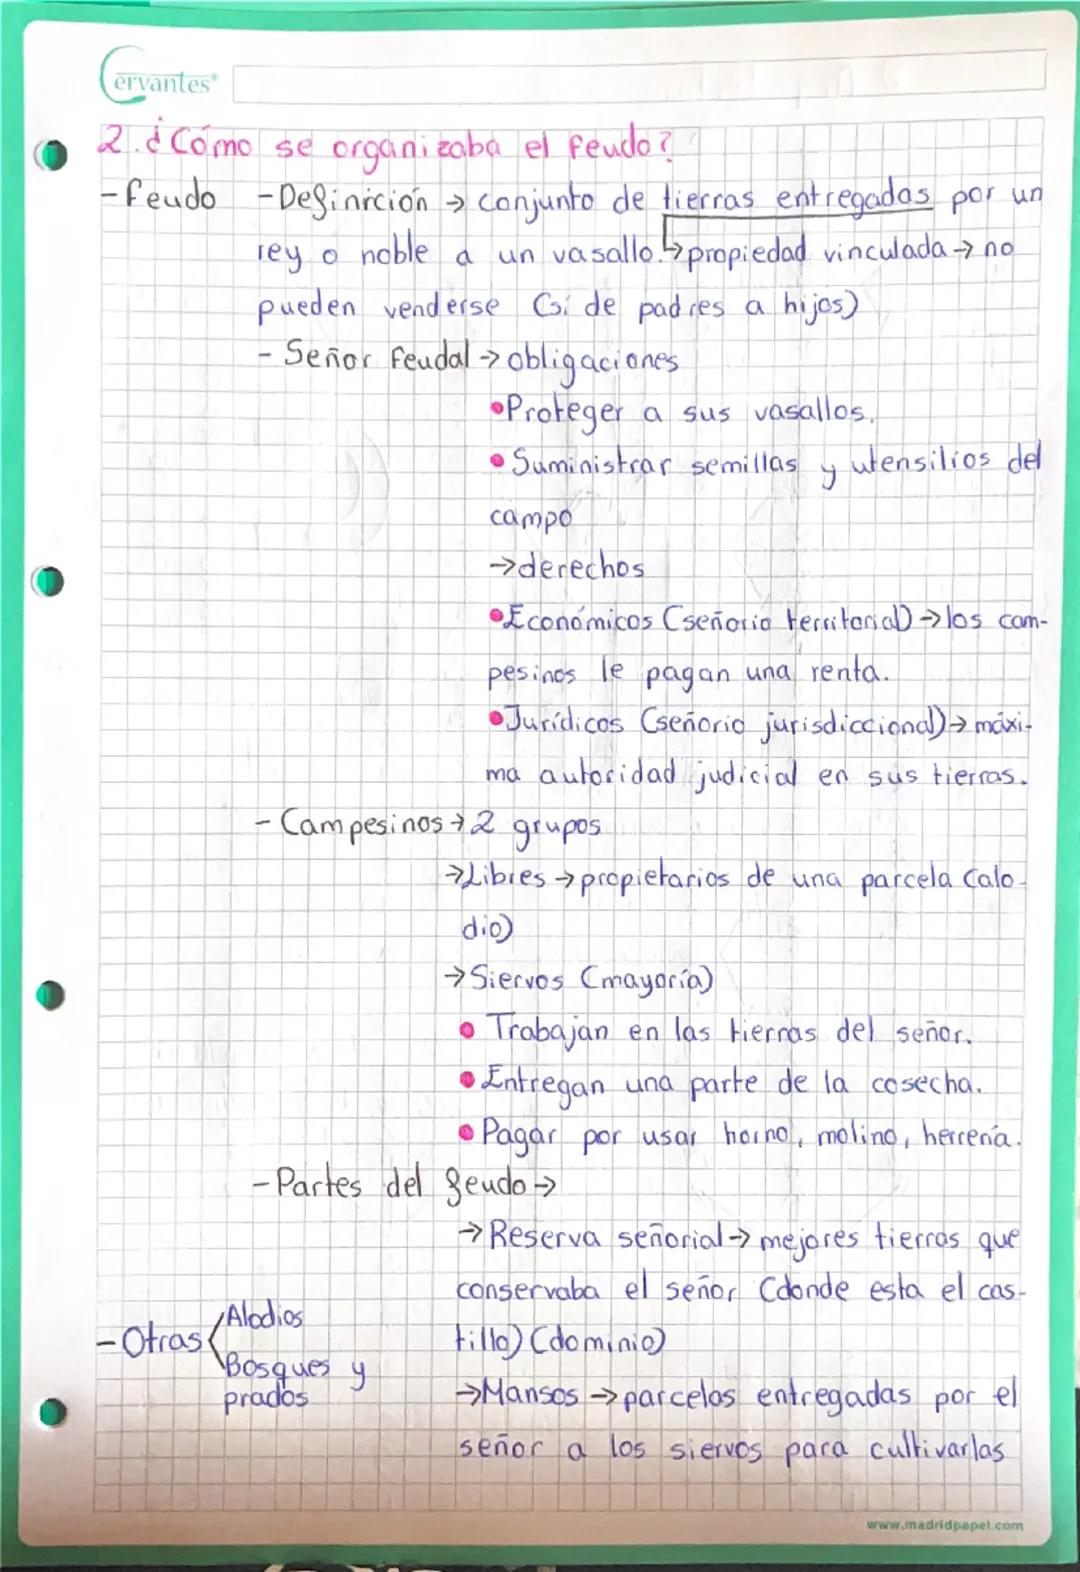 Cervantes
2. ¿Cómo se organizaba el feudo?
- feudo - Definición → conjunto de tierras entregadas por un
rey o noble a un vasallo. ↳ propiedad vinculada → no
pueden venderse (sí de padres a hijos)
- Señor feudal → obligaciones
• Proteger a sus vasallos.
• Suministrar semillas y utensilios del
campo
→ derechos
• Económicos (señorio territorial) → los cam-
pesinos le pagan una renta.
• Jurídicos (señorio jurisdiccional) → máxi-
ma autoridad judicial en sus tierras.
- Campesinos → 2 grupos
→ Libres → propietarios de una parcela (alo-
dio)
→ Siervos (mayoría)
• Trabajan en las tierras del señor.
• Entregan una parte de la cosecha.
• Pagar por usar horno, molino, herrería.
- Partes del feudo →
→ Reserva señorial → mejores tierras que
conservaba el señor (donde esta el cas-
tillo) (dominio)
→ Mansos → parcelas entregadas por el
señor a los siervos para cultivarlas
- Otras
Alodios
Bosques y
prados
www.madridpapel.com